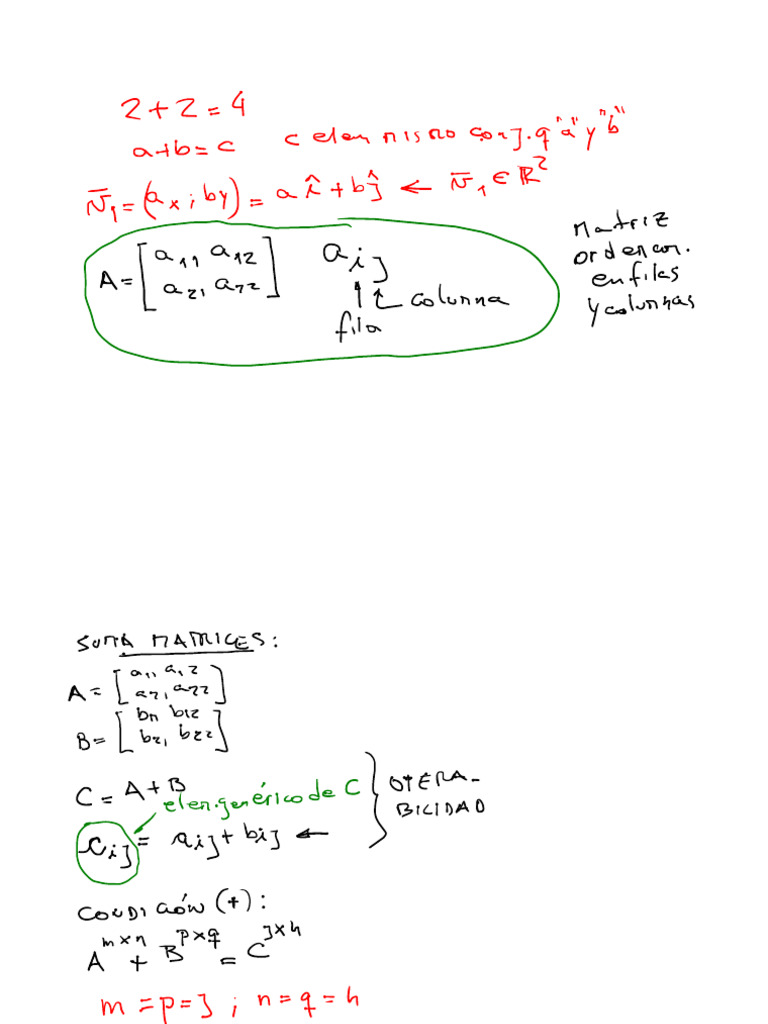 2+2=4
a+b=c   c elem mismo conj. q "a" y "b"
v̄₁=(aₓ; by) = a î + b ĵ ← v̄₁ ∈ ℝ²
A = [a₁₁ a₁₂   aᵢⱼ   Matriz
a₂₁ a₂₂]   ↑ ↑ columna   orden con.
fila   en filas
y columnas
SUMA MATRICES:
A = [a₁₁ a₁₂
a₂₁ a₂₂]
B = [b₁₁ b₁₂
b₂₁ b₂₂]
C = A + B   elem. genérico de C   OPERA-
cᵢⱼ = aᵢⱼ + bᵢⱼ ←   BILIDAD
CONDICIÓN (+):
A^{m×n} + B^{p×q} = C^{j×h}
m = p = j ; n = q = h